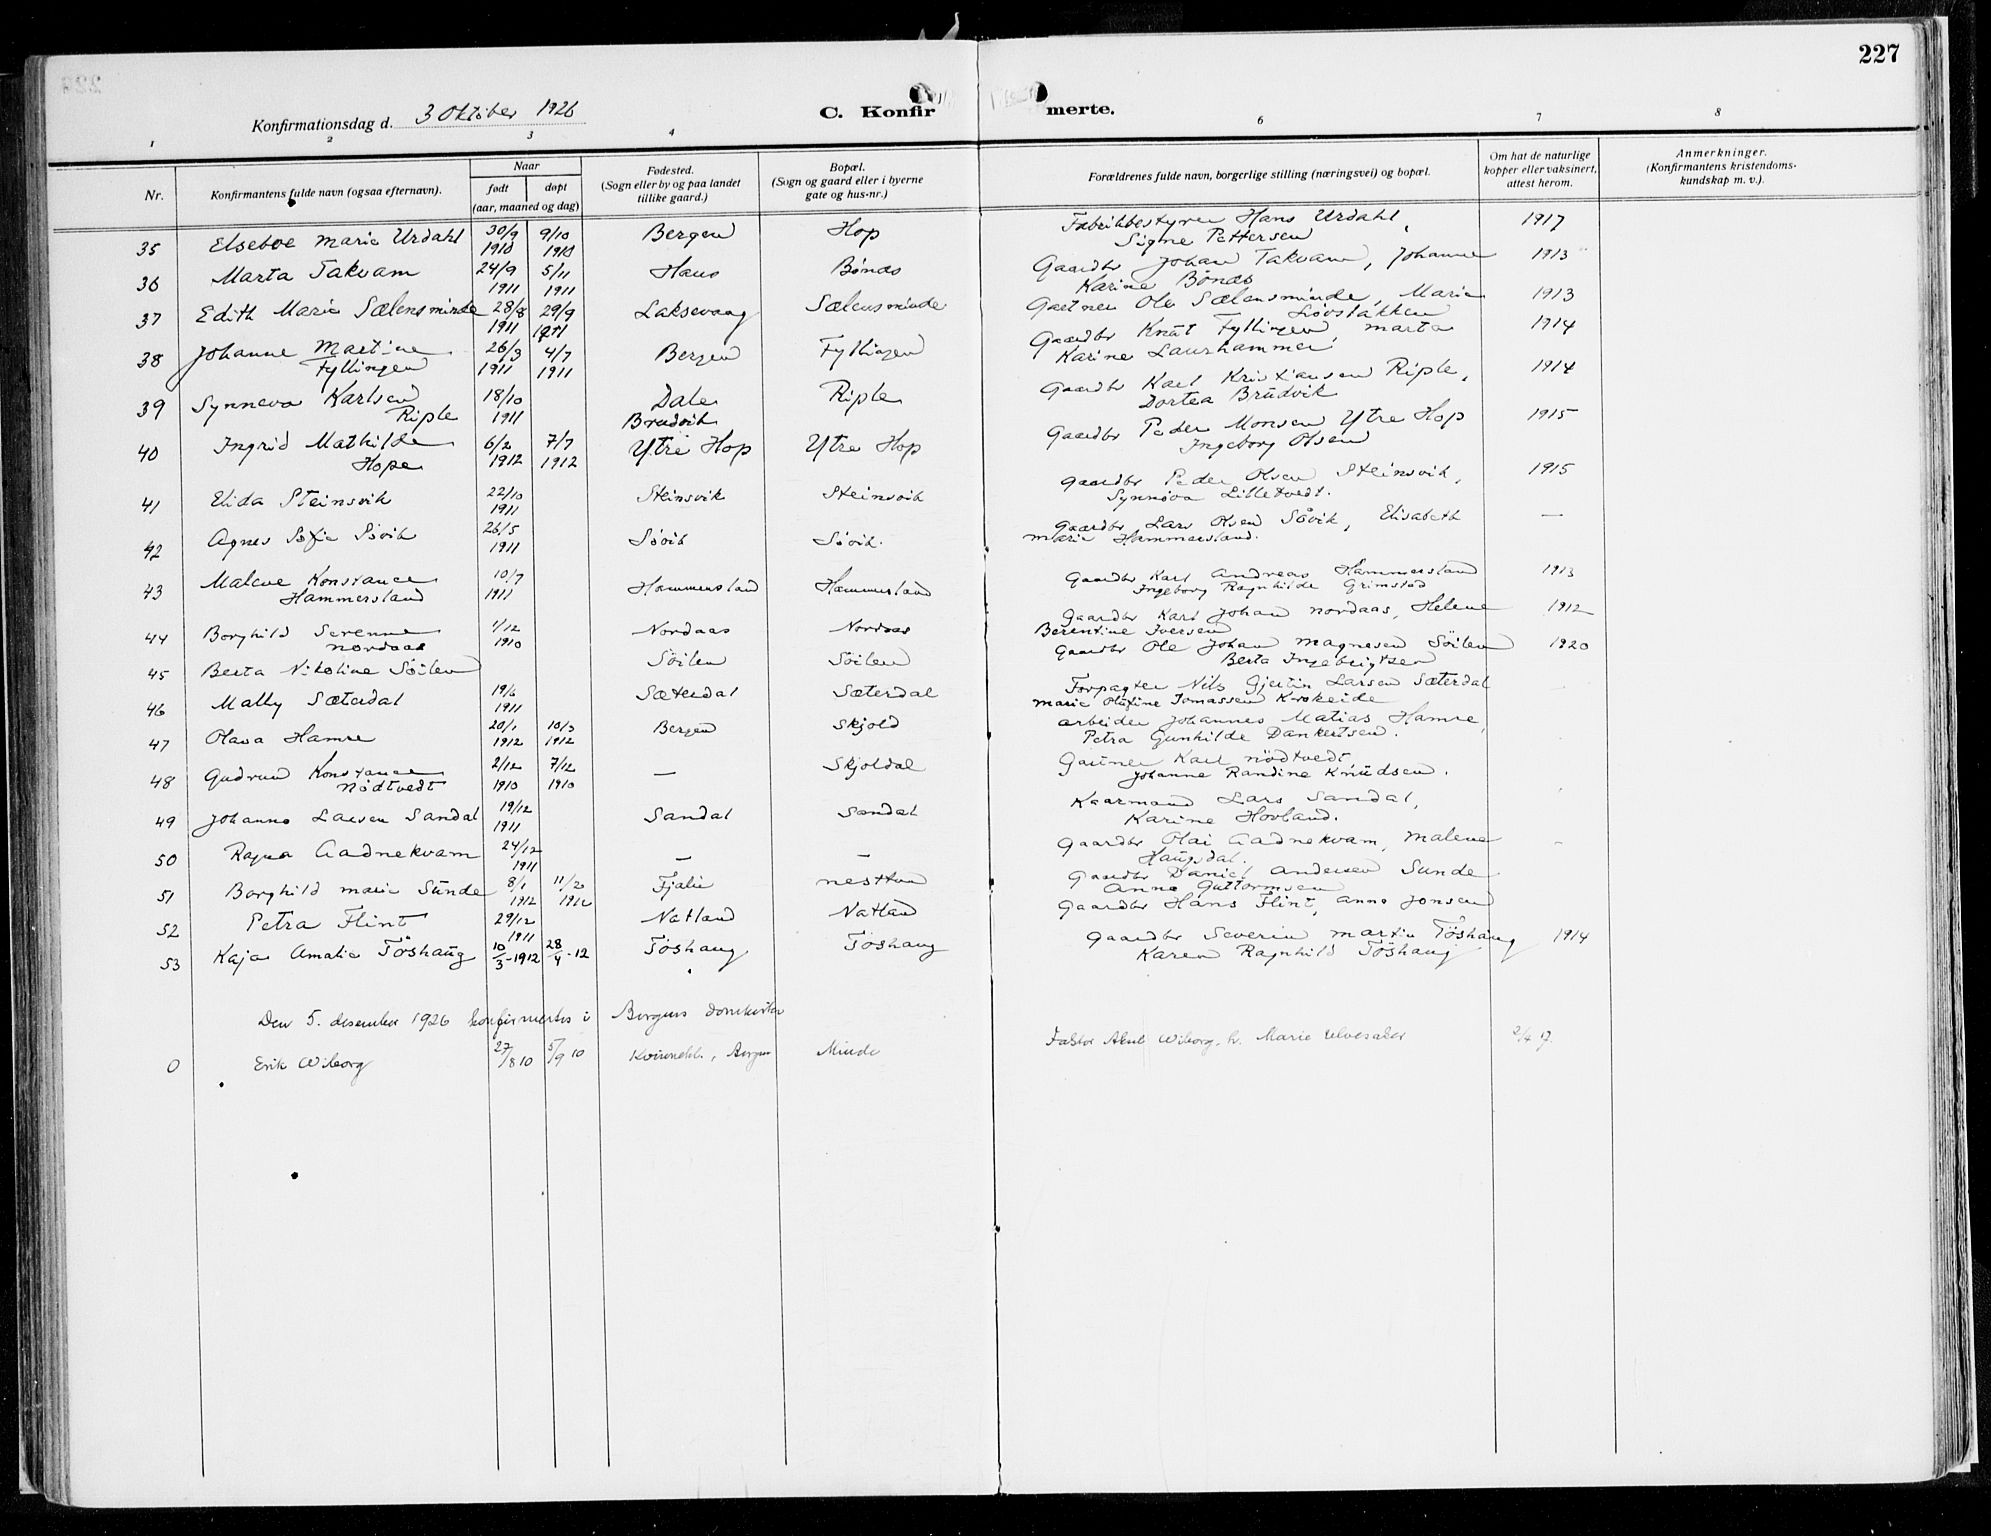 227
Konfirmationsdag d. 3 Oktober 1926
C. Konfirmerte.
1 2 3 4 6 7 8
Nr.
Konfirmantens fulde navn (ogsaa efternavn).
Naar
født
døpt
(aar, maaned og dag)
Fødested.
(Sogn eller by og paa landet
tillike gaard.)
Bopæl.
(Sogn og gaard eller i byerne
gate og hus-nr.)
Forældrenes fulde navn, borgerlige stilling (næringsvei) og bopæl.
Om hat de naturlige
kopper eller vaksinert,
attest herom.
Anmerkninger.
(Konfirmantens kristendoms-
kundskap m. v.).
35 Elseboe Marie Urdahl 30/9 1910 9/10 1910 Bergen Hop Fabrikbestyrer Hans Urdahl, 1917
Signe Pettersen
36 Marta Takvam 24/9 1911 5/11 1911 Haus Bønds Gaardbr Johan Takvam, Johanne 1913
Karine Bønds
37 Edith Marie Sælensminde 28/8 1911 29/9 1911 Laksevaag Sælensminde Gartner Ole Sælensminde, Marie 1913
Løvstakken
38 Johanne Martine 26/3 1911 4/7 1911 Bergen Fyllingen Gaardbr Knut Fyllingen, Marta 1914
Fyllingen Karine Laurhammer
39 Synneva Karlsen 18/10 1911 Dale Riple Gaardbr Karl Kristiansen Riple, 1914
Riple Brudvik Dortea Brudvik
40 Ingrid Mathilde 6/2 1912 7/7 1912 Ytre Hop Ytre Hop Gaardbr Peder Monsen Ytre Hop 1915
Hope Ingeborg Olsen
41 Elida Steinsvik 22/10 1911 Steinsvik Steinsvik Gaardbr Peder Olsen Steinsvik, 1915
Synnøva Lilletvedt.
42 Agnes Sofie Søvik 26/5 1911 Søvik Søvik. Gaardbr Lars Olsen Søvik, Elisabeth —
Marie Hammersland.
43 Malene Konstance 10/7 1911 Hammersland Hammersland Gaardbr Karl Andreas Hammersland 1913
Hammersland Ingeborg Ragnhilde Grimstad
44 Borghild Serenne 1/12 1910 Nordaas Nordaas Gaardbr Karl Johan Nordaas, Helene 1912
Nordaas Berentine Iversen
45 Berta Nikoline Søilen Søilen Søilen Gaardbr Ole Johan Magnesen Søilen 1920
Berta Ingebrigtsen
46 Mally Sæterdal 19/6 1911 Sæterdal Sæterdal Forpagter Nils Gjertin Larsen Sæterdal
Marie Olufine Tomassen Krokeide
47 Olava Hamre 20/1 1912 10/3 1912 Bergen Skjold arbeider Johannes Matias Hamre,
Petra Gunhilde Dankertsen.
48 Gudrun Konstance 2/12 1910 7/12 1910 — Skjoldal Gartner Karl Nødtvedt,
Nødtvedt Johanne Randine Knudsen.
49 Johanne Larsen Sandal 19/12 1911 Sandal Sandal Kaarmand Lars Sandal,
Karine Hovland.
50 Ragna Aadnekvam 24/12 1911 — — Gaardbr Olai Aadnekvam, Malene –
Haugsdal.
51 Borghild Marie Sunde 8/1 1912 11/2 1912 Fjaler Nesttun Gaardbr Daniel Andersen Sunde
Anna Guttormsen
52 Petra Flint 29/12 1911 Natland Natland Gaardbr Hans Flint, Anna Jonsen
53 Kaja Amalie Tøshaug 10/3-1912 28/4-12 Tøshaug Tøshaug Gaardbr Severin Martin Tøshaug 1914
Karen Ragnhild Tøshaug
Den 5. desember 1926 konfirmertes i Bergens domkirke
0 Erik Wiborg 27/8 10 5/9 10 Kvinnekl., Bergen Minde Faktor Wiborg. h. Marie Ulvesæter 2/4 17.